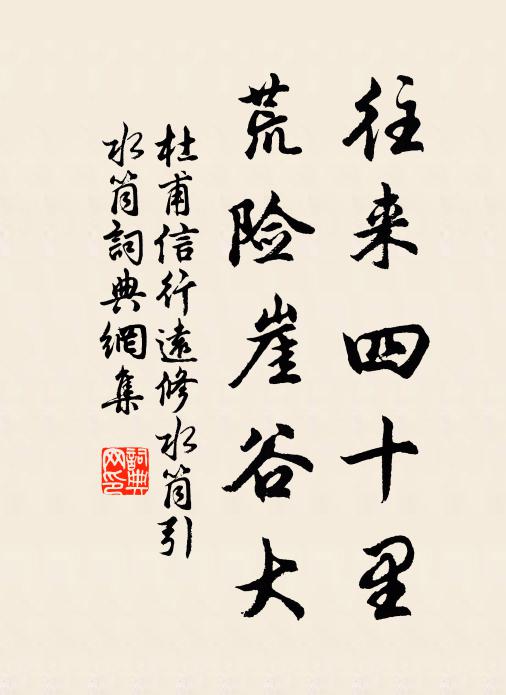 往来四十里
荒险崖谷大
杜甫信行遠修水筒引
水筒詞典網集
詞典
网印